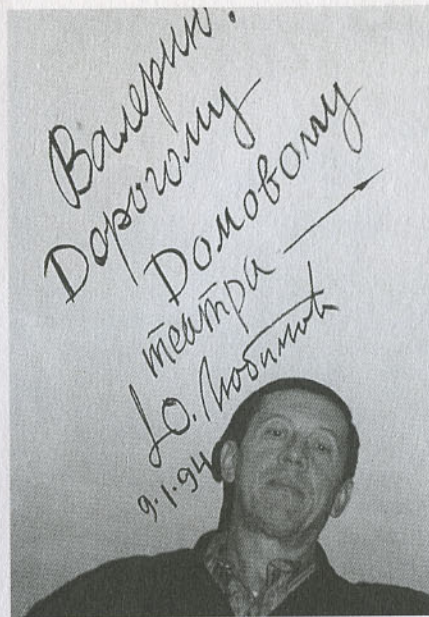 Валерик!
Дорогому
Домовому
театра
Ю. Любимов
9.1.94